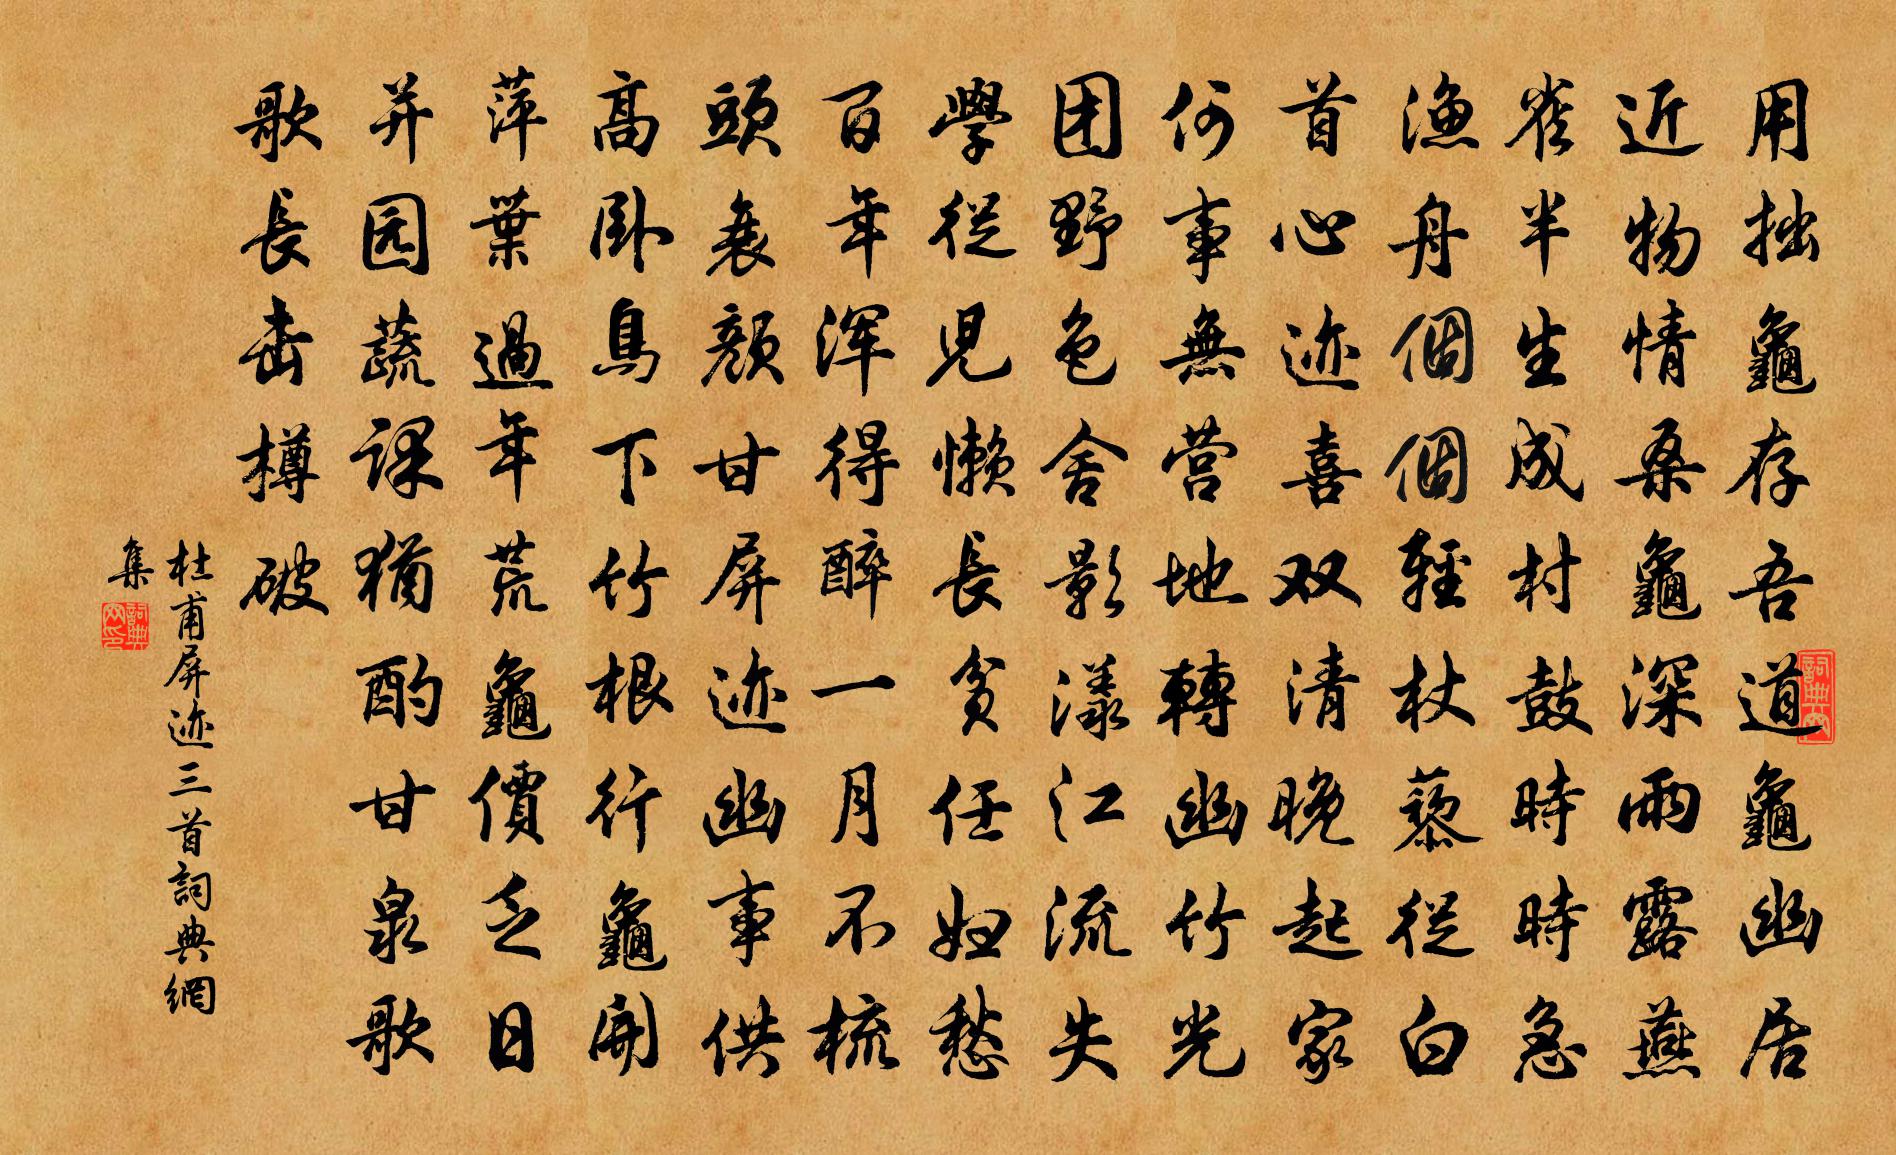 用拙龜存吾道龜幽居
近物情桑龜深雨露燕
雀半生成村鼓時時急
漁舟個個輕杖藜從白
首心迹喜双清晚起家
何事無营地轉幽竹光
团野色舍影漾江流失
學從兒懶長貧任妇愁
百年浑得醉一月不梳
頭衰颜甘屏迹幽事供
高卧鳥下竹根行龜開
萍葉過年荒龜價乏日
并园蔬課猶酌甘泉歌
歌長击樽破
杜甫屏迹三首詞典網
集
詞典网
詞典网印